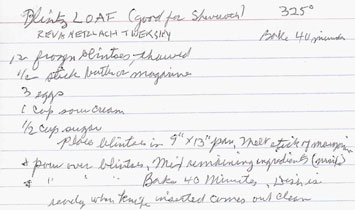 Blintz LOAF (good for Shavuoth) 325°
REVA NETLLACH TWERSKY Bake 40 minutes
12 frozen blintzes, thawed
1/2 stick butter or margarine
3 eggs
1 cup sour cream
1/2 cup sugar
Place blintzes in 9" x 13" pan, Melt stick of margarin
& pour over blintzes, Mix remaining ingredients (mix)
& " " " Bake 40 Minutes, Dish is
ready when knife inserted comes out clean